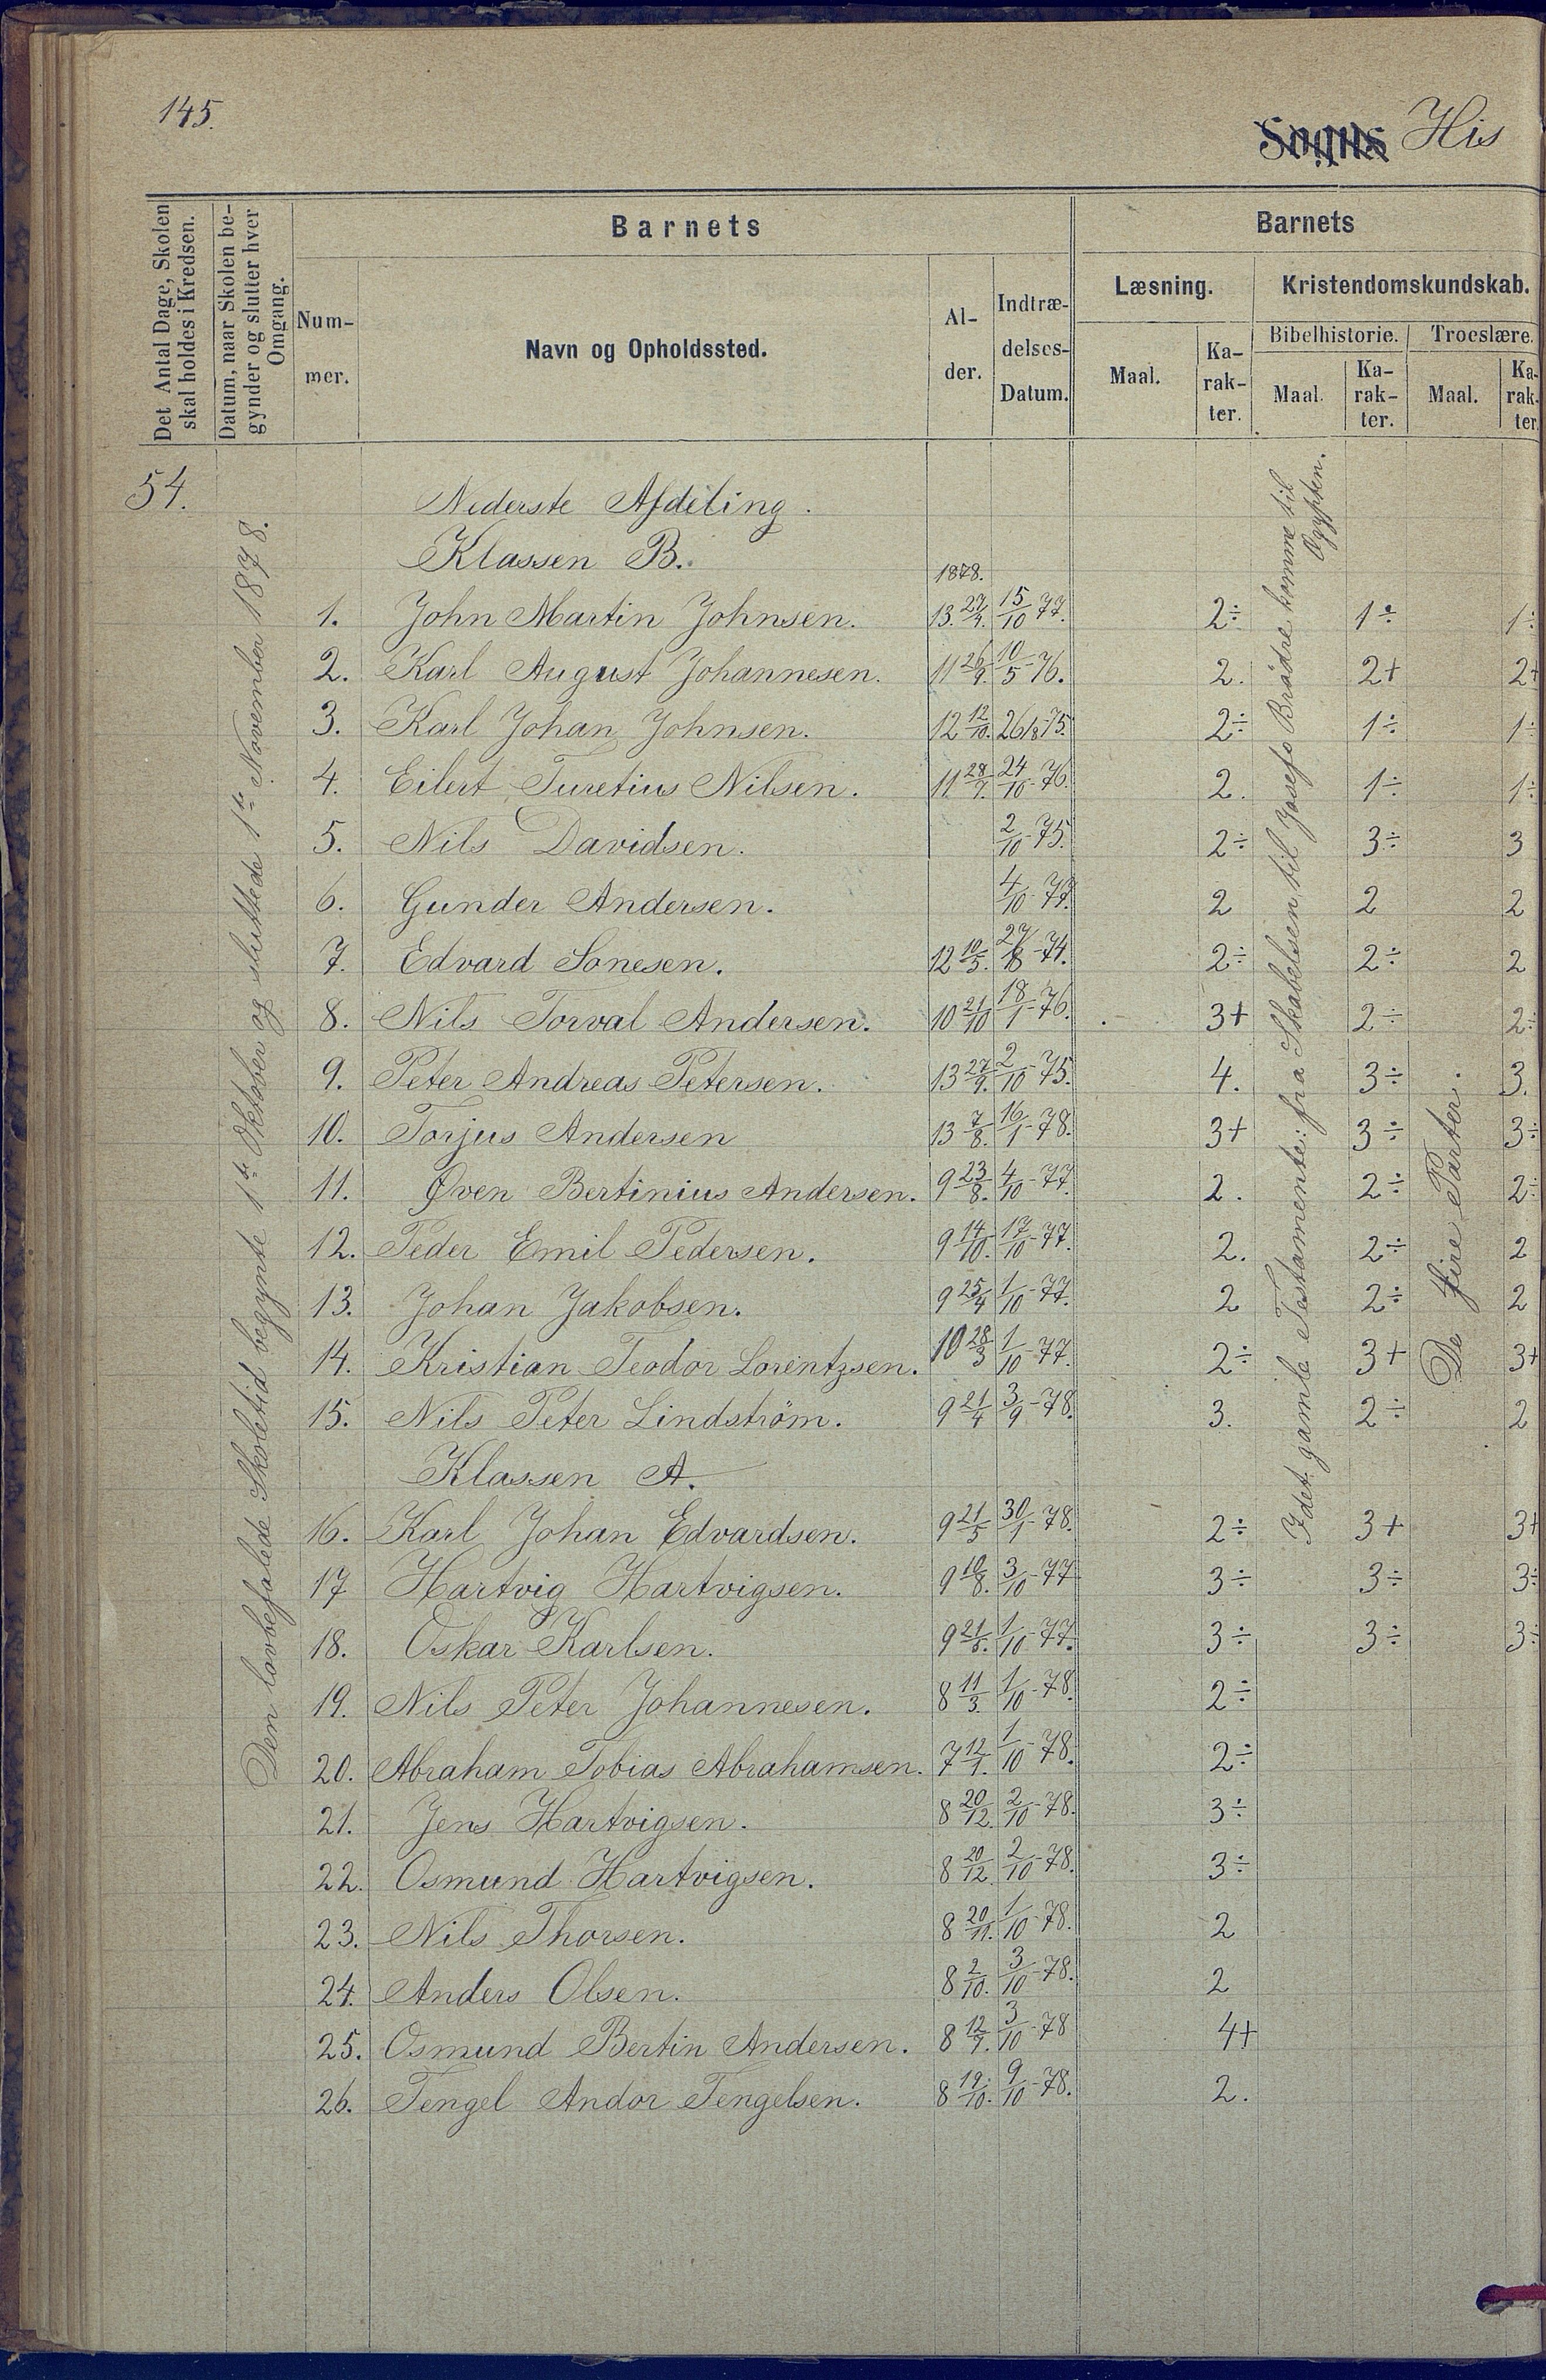 145.
Sogns His
Det Antal Dage, Skolen skal holdes i Kredsen.
Datum, naar Skolen begynder og slutter hver Omgang.
Barnets
Barnets
Num-mer.
Navn og Opholdssted.
Al-der.
Indtræ-delses-Datum.
Læsning.
Kristendomskundskab.
Maal.
Ka-rak-ter.
Bibelhistorie.
Troeslære.
Maal.
Ka-rak-ter.
Maal.
Ka-rak-ter.
54.
Den lovbefalede Skoletid begynte 1te Oktober og sluttede 1te November 1878.
Idet gamle Testamente: fra Skabelsen til Josefs Brödre komme til Ægypten.
De fire Parter.
Nederste Afdeling.
Klassen B.
1878.
1. John Martin Johnsen. 13 27/4. 15/10 77. 2÷ 1÷ 1÷
2. Karl August Johannesen. 11 26/9. 10/5-76. 2. 2+ 2+
3. Karl Johan Johnsen. 12 12/10. 26/8-75. 2÷ 1÷ 1÷
4. Eilert Turetius Nilsen. 11 28/7. 24/10-76. 2. 1÷ 1÷
5. Nils Davidsen. 2/10-75. 2÷ 3÷ 3
6. Gunder Andersen. 4/10-77. 2 2 2
7. Edvard Sonesen. 12 10/5. 27/8-74. 2÷ 2÷ 2
8. Nils Torval Andersen. 10 21/10 18/1-76. 3+ 2÷ 2÷
9. Peter Andreas Petersen. 13 27/9. 2/10-75. 4. 3÷ 3.
10. Torjus Andersen 13 7/8. 16/1-78. 3+ 3÷ 3÷
11. Øven Bertinius Andersen. 9 23/8. 4/10-77. 2. 2÷ 2÷
12. Peder Emil Pedersen. 9 14/10. 17/10-77. 2. 2÷ 2
13. Johan Jakobsen. 9 25/4 1/10-77. 2 2÷ 2
14. Kristian Teodor Lorentzsen. 10 28/3 1/10-77. 2÷ 3+ 3+
15. Nils Peter Lindström. 9 21/4 3/9-78. 3. 2÷ 2
Klassen A.
16. Karl Johan Edvardsen. 9 21/5 30/1-78. 2÷ 3+ 3+
17 Hartvig Hartvigsen. 9 10/8. 3/10-77 3÷ 3÷ 3÷
18. Oskar Karlsen. 9 21/5. 1/10-77. 3÷ 3÷ 3÷
19. Nils Peter Johannesen. 8 11/3. 1/10-78. 2÷
20. Abraham Tobias Abrahamsen. 7 12/1. 1/10-78. 2÷
21. Jens Hartvigsen. 8 20/12. 2/10-78. 3÷
22. Osmund Hartvigsen. 8 20/12. 2/10-78. 3÷
23. Nils Thorsen. 8 20/11. 1/10-78. 2
24. Anders Olsen. 8 2/10. 3/10-78. 2
25. Osmund Bertin Andersen. 8 12/7. 3/10-78 4+
26. Tengel Andor Tengelsen. 8 19/10. 9/10-78. 2.